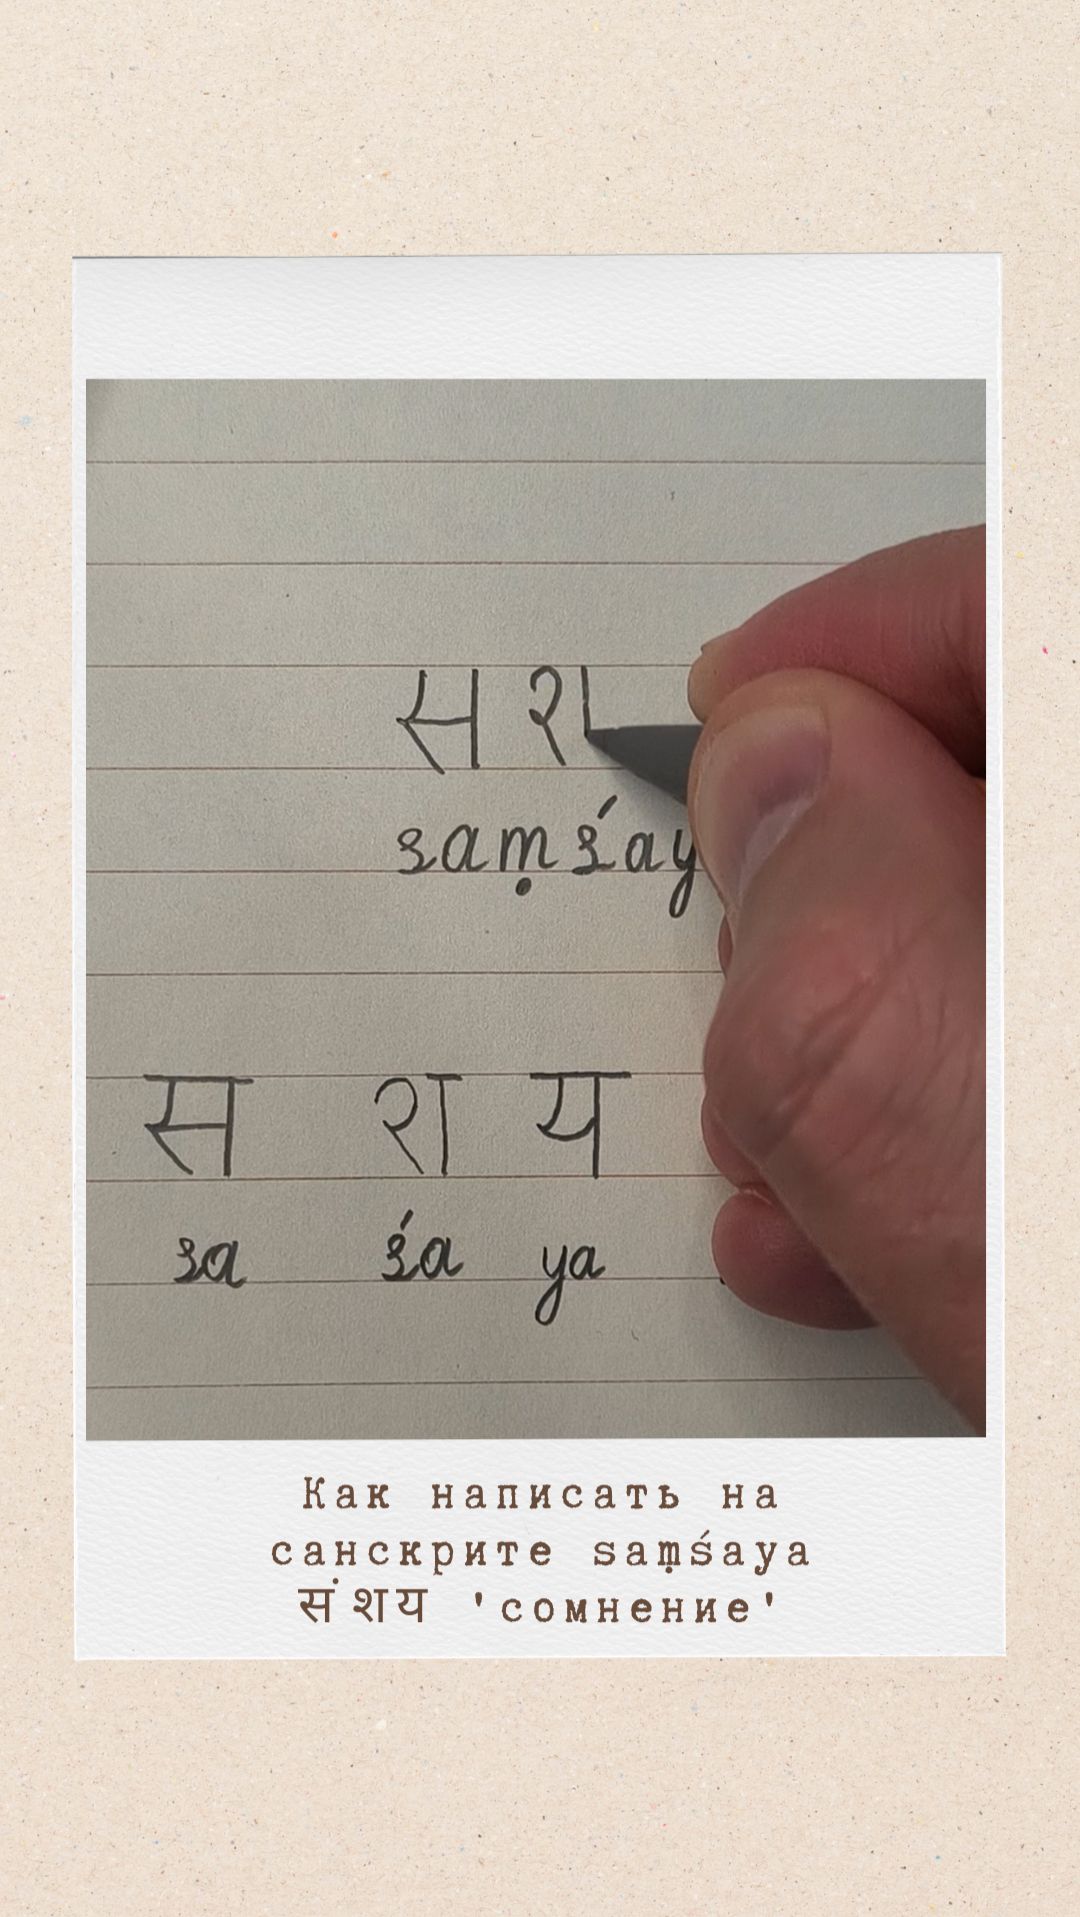 स श
saṃśay
स श य
sa śa ya
Как написать на
санскрите saṃśaya
संशय 'сомнение'